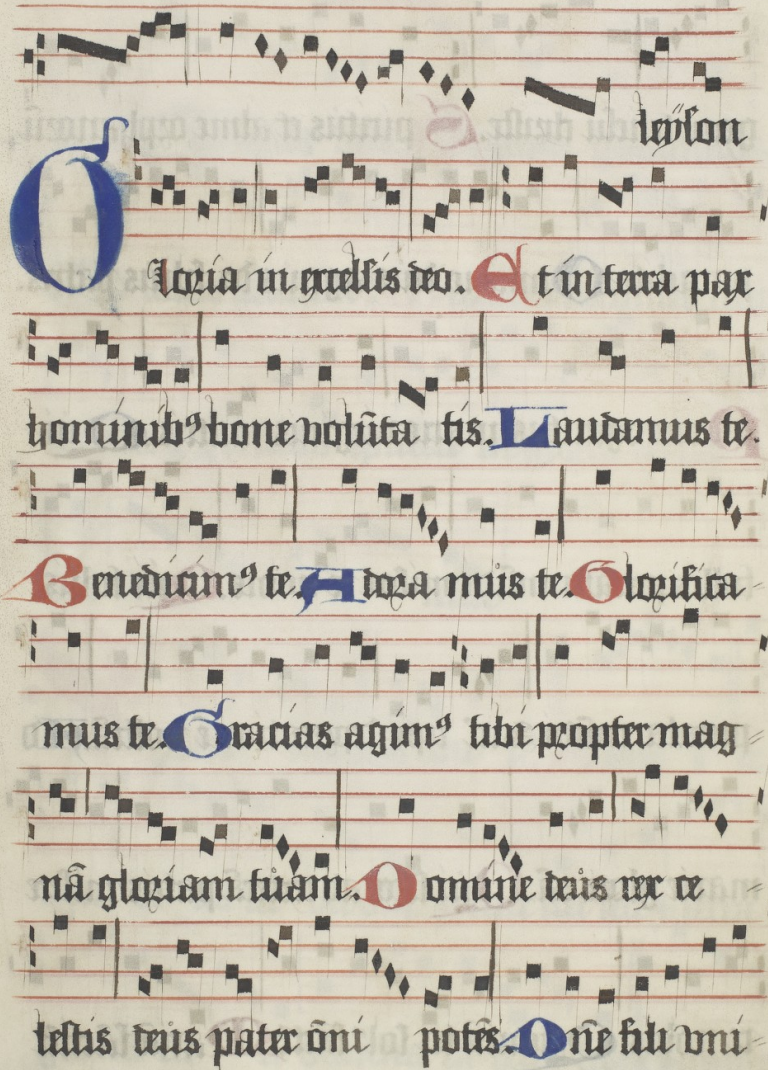 leÿson
Gloria in excelsis deo. Et in terra pax
hominibꝰ bone volūta tis. Laudamus te.
Benedicimꝰ te. Adora mus te. Glorifica
mus te. Gracias agimꝰ tibi propter mag
nā gloriam tuam. Domine deus rex ce
lestis deus pater om̄i potēs. Dn̄e fili vni